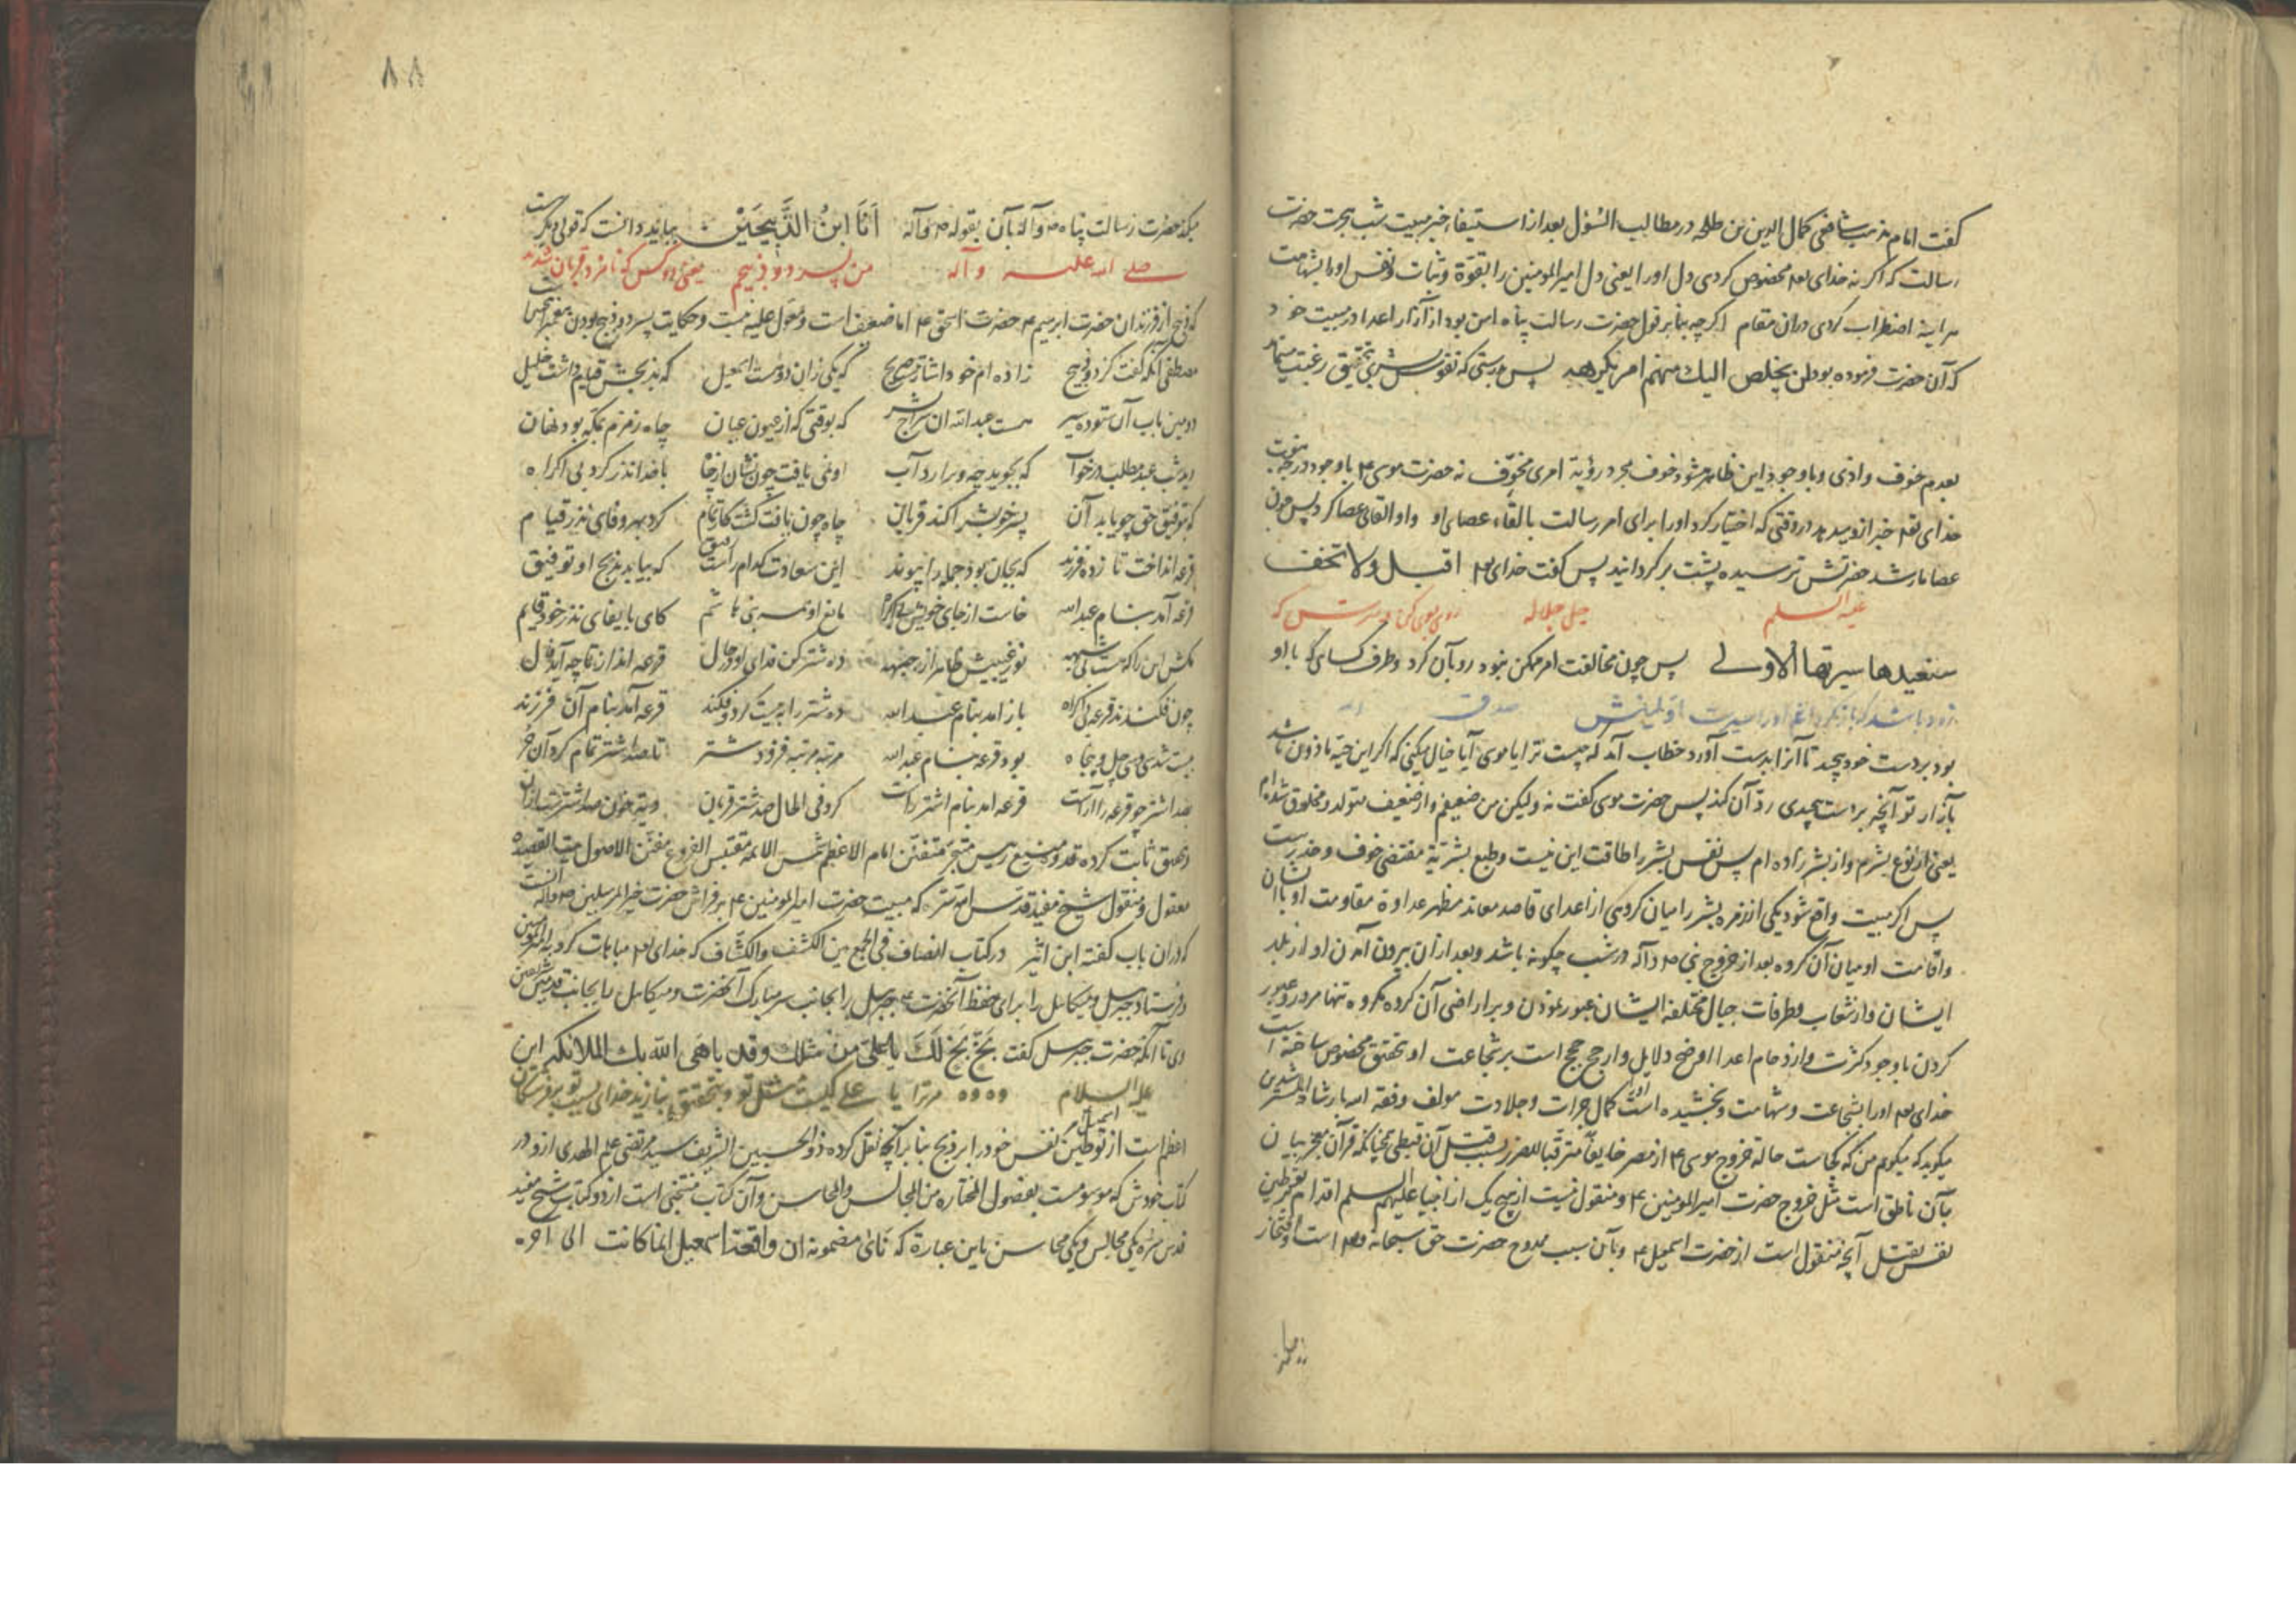 گفت امام مذهب شافعی کمال الدین بن طلحه در مطالب السؤل بعد از استیفاء خبر مبیت شب هجرت حضرت
رسالت که اگر نه خدای تعه مخصوص کردی دل او را یعنی دل امیر المومنین را بقوة و ثبات و نفس او را بشهامت
هر اینه اضطراب کردی در ان مقام اگر چه بنابر قول حضرت رسالت پناه ایمن بود از آزار اعدا در مبیت خود
که آن حضرت فرموده بود لن یخلص الیك منهم امر تکرهه پس بدرستی که نفوس بشری بتحقیق رغبت مینماید
بعدم خوف و اذی و با وجود این ظاهر میشود خوف بمجرد رؤیة امری مخوّف نه حضرت موسی ۴ با وجود درجه نبوت
خدای تعه خبر ازو میدهد در وقتی که اختیار کرد او را برای امر رسالت بالقاء عصای او و او القای عصا کرد پس چون
عصا مار شد حضرتش ترسیده پشت برگردانید پس گفت خدای تعه اقبل ولا تخف
علیه السلم جل جلاله روی بسوی کن و مترس که
سنعیدها سیرتها الاولی پس چون مخالفت امر ممکن نبود رو بآن کرد و طرف کسای که با او
زود باشد که باز گردانیم او را بسیرت اولینش صدق الله
بود بر دست خود پیچید تا آنرا بدست آورد خطاب آمد که چیست ترا یا موسی آیا خیال میکنی که اگر این حیّه ماذون باشد
بآزار تو آنچه بر دست پیچیدی ردّ آن کند پس حضرت موسی گفت نه ولیکن من ضعیفم و از ضعیف متولد و مخلوق شده ام
یعنی از نوع بشرم و از بشر زاده ام پس نفس بشر را طاقت این نیست و طبع بشریّة مقتضی خوف و حذرست
پس اگر مبیت واقع شود یکی از زمره بشر را میان گروهی از اعدای قاصد معاند مظهر عداوة مقاومت او با ایشان
و اقامت او میان آن گروه بعد از خروج نبی ص و آله در شب چگونه باشد و بعد از ان بیرون آمدن او از بلد
ایشان و از شعاب و طرفات جبال مختلفه ایشان عبور نمودن و بر اراضی آن گروه مکروه تنها مرور و عبور
کردن با وجود کثرت و ازدحام اعدا اوضح دلایل و ارجح حجج است بر شجاعت او بتحقیق مخصوص ساخته است
خدای تعه او را بشجاعت و شهامت و بخشیده است او را کمال جرات و جلادت مولف وفقه الله بارشاد المسترشدین
میگوید که میگویم من که کجاست حالة خروج موسی ۴ از مصر خایفا مترقبا للضرر بسبب قتل آن قبطی همچنانکه قرآن معجز بیان
بآن ناطق است مثل خروج حضرت امیر المومنین ۴ و منقول نیست از هیچ یک از انبیا علیهم السلم اقدام بتوطین
نفس بقتل آنچه منقول است از حضرت اسمعیل ۴ و بآن سبب ممدوح حضرت حق سبحانه و تعه است و افتخار
۸۸
میکند حضرت رسالت پناه ص و آله بآن بقوله ص و آله اَنَا ابنُ الذَّبِیحَیْن بباید دانست که قولی دیگر هست
صلی الله علیه و آله من پسر دو ذبیحم یعنی دو کس که نامزد قربان شدند
که ذبیح از فرزندان حضرت ابرهیم ۴ حضرت اسحق ۴ اما ضعیف است و معوّل علیه نیست و حکایت پسر دو ذبیح بودن پیغمبر
مصطفی آنکه گفت کز دو ذبیح زاده ام خود اشارتست صریح که یکی زان دوست اسمعیل که بذبحش قیام داشت خلیل
دومین باب آن ستوده سیر هست عبدالله ان سراج بشر که بوقتی که از عیون عیان چاه زمزم بمکه بود نهان
دید شب عبد مطلب در خواب که بجوید چه و برارد آب او نمی یافت چون نشان از چاه با خدا نذر کرد بی اکراه
که بتوفیق حق چو یابد آن پسر خویش را کند قربان چاه چون یافت گشت کار تمام کرد بهر وفای نذر قیام
قرعه انداخت تا ز ده فرزند که بجان بود جمله را پیوند این سعادت کدام راست رفیق که بیابد بذبح او توفیق
قرعه آمد بنام عبدالله خاست از جای خویش مانع او شد بنی هاشم کای بایفای نذر خود قایم
مکش این را که هست بی شبهه نور غیبیش ظاهر از جبهه ده شتر کن فدای او در حال قرعه انداز تا چه آید فال
چون فکندند قرعه بی اکراه باز آمد بنام عبدالله ده شتر را به بیست کرد و فکند قرعه آمد بنام آن فرزند
بیست شد سی و سی چل و پنجاه بود قرعه بنام عبدالله مرتبه مرتبه فزود شتر تا بصد اشتر تمام کرد آن حُر
بصد اشتر چو قرعه را آراست قرعه آمد بنام اشتر راست کرد فی الحال صد شتر قربان دیت خون صد اشترست ازان
و تحقیق ثابت کرده قدوه منیع رییس متبحر متفنن امام الاعظم شمس الایمه مقتبس الفروع مفنن الاصول
معقول و منقول شیخ مفید قدس الله سره که مبیت حضرت امیر المومنین ۴ بر فراش حضرت خیر المرسلین ص و آله
که در ان باب گفته ابن اثیر در کتاب انصاف فی الجمع بین الکشف و الکشاف که خدای تعه مباهات کرد به امیر المومنین
و فرستاد جبرییل و میکاییل را برای حفظ آنحضرت ۴ جبرییل را بجانب سر مبارک آنحضرت و میکاییل را بجانب قدمین شریفین
وی تا آنکه حضرت جبرییل گفت بَخٍّ بَخٍّ لَكَ یا علی من مثلك وقد باهی الله بك الملائکه این
علیه السلام وه وه مر ترا یا علی کیست مثل تو و بتحقیق بنازید خدای بسبب تو بر فرشتگان
اعظم است از توطین اسمعیل نفس خود را بر ذبح بنا بر آنچه نقل کرده ذو الحسبین الشریف سید مرتضی علم الهدی ازو در
کتاب خودش که موسومست بفصول المختاره من المجالس و المحاسن و آن کتاب منتخبی است از دو کتاب شیخ مفید
قدس سره یکی مجالس و یکی محاسن باین عبارة که ان واقعة اسمعیل انما کانت الی آخره